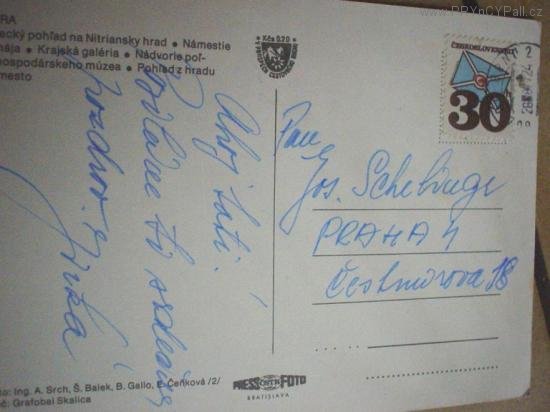 www.PRYnCYPall.cz
RA
ecký pohľad na Nitriansky hrad • Námestie
mája • Krajská galéria • Nádvorie poľ-
ospodárskeho múzea • Pohľad z hradu
mesto
Kčs 0,20
ČESKOSLOVENSKO
30
Ahoj tati!
Posíláme ti srdečný
pozdrav!
Jirka
Pan
Jos. Schelinger
PRAHA 4
Čestmírova 18
to: Ing. A. Srch, Š. Balek, B. Gallo, E. Čeňková /2/
č: Grafobal Skalica
PRESSFOTO
BRATISLAVA